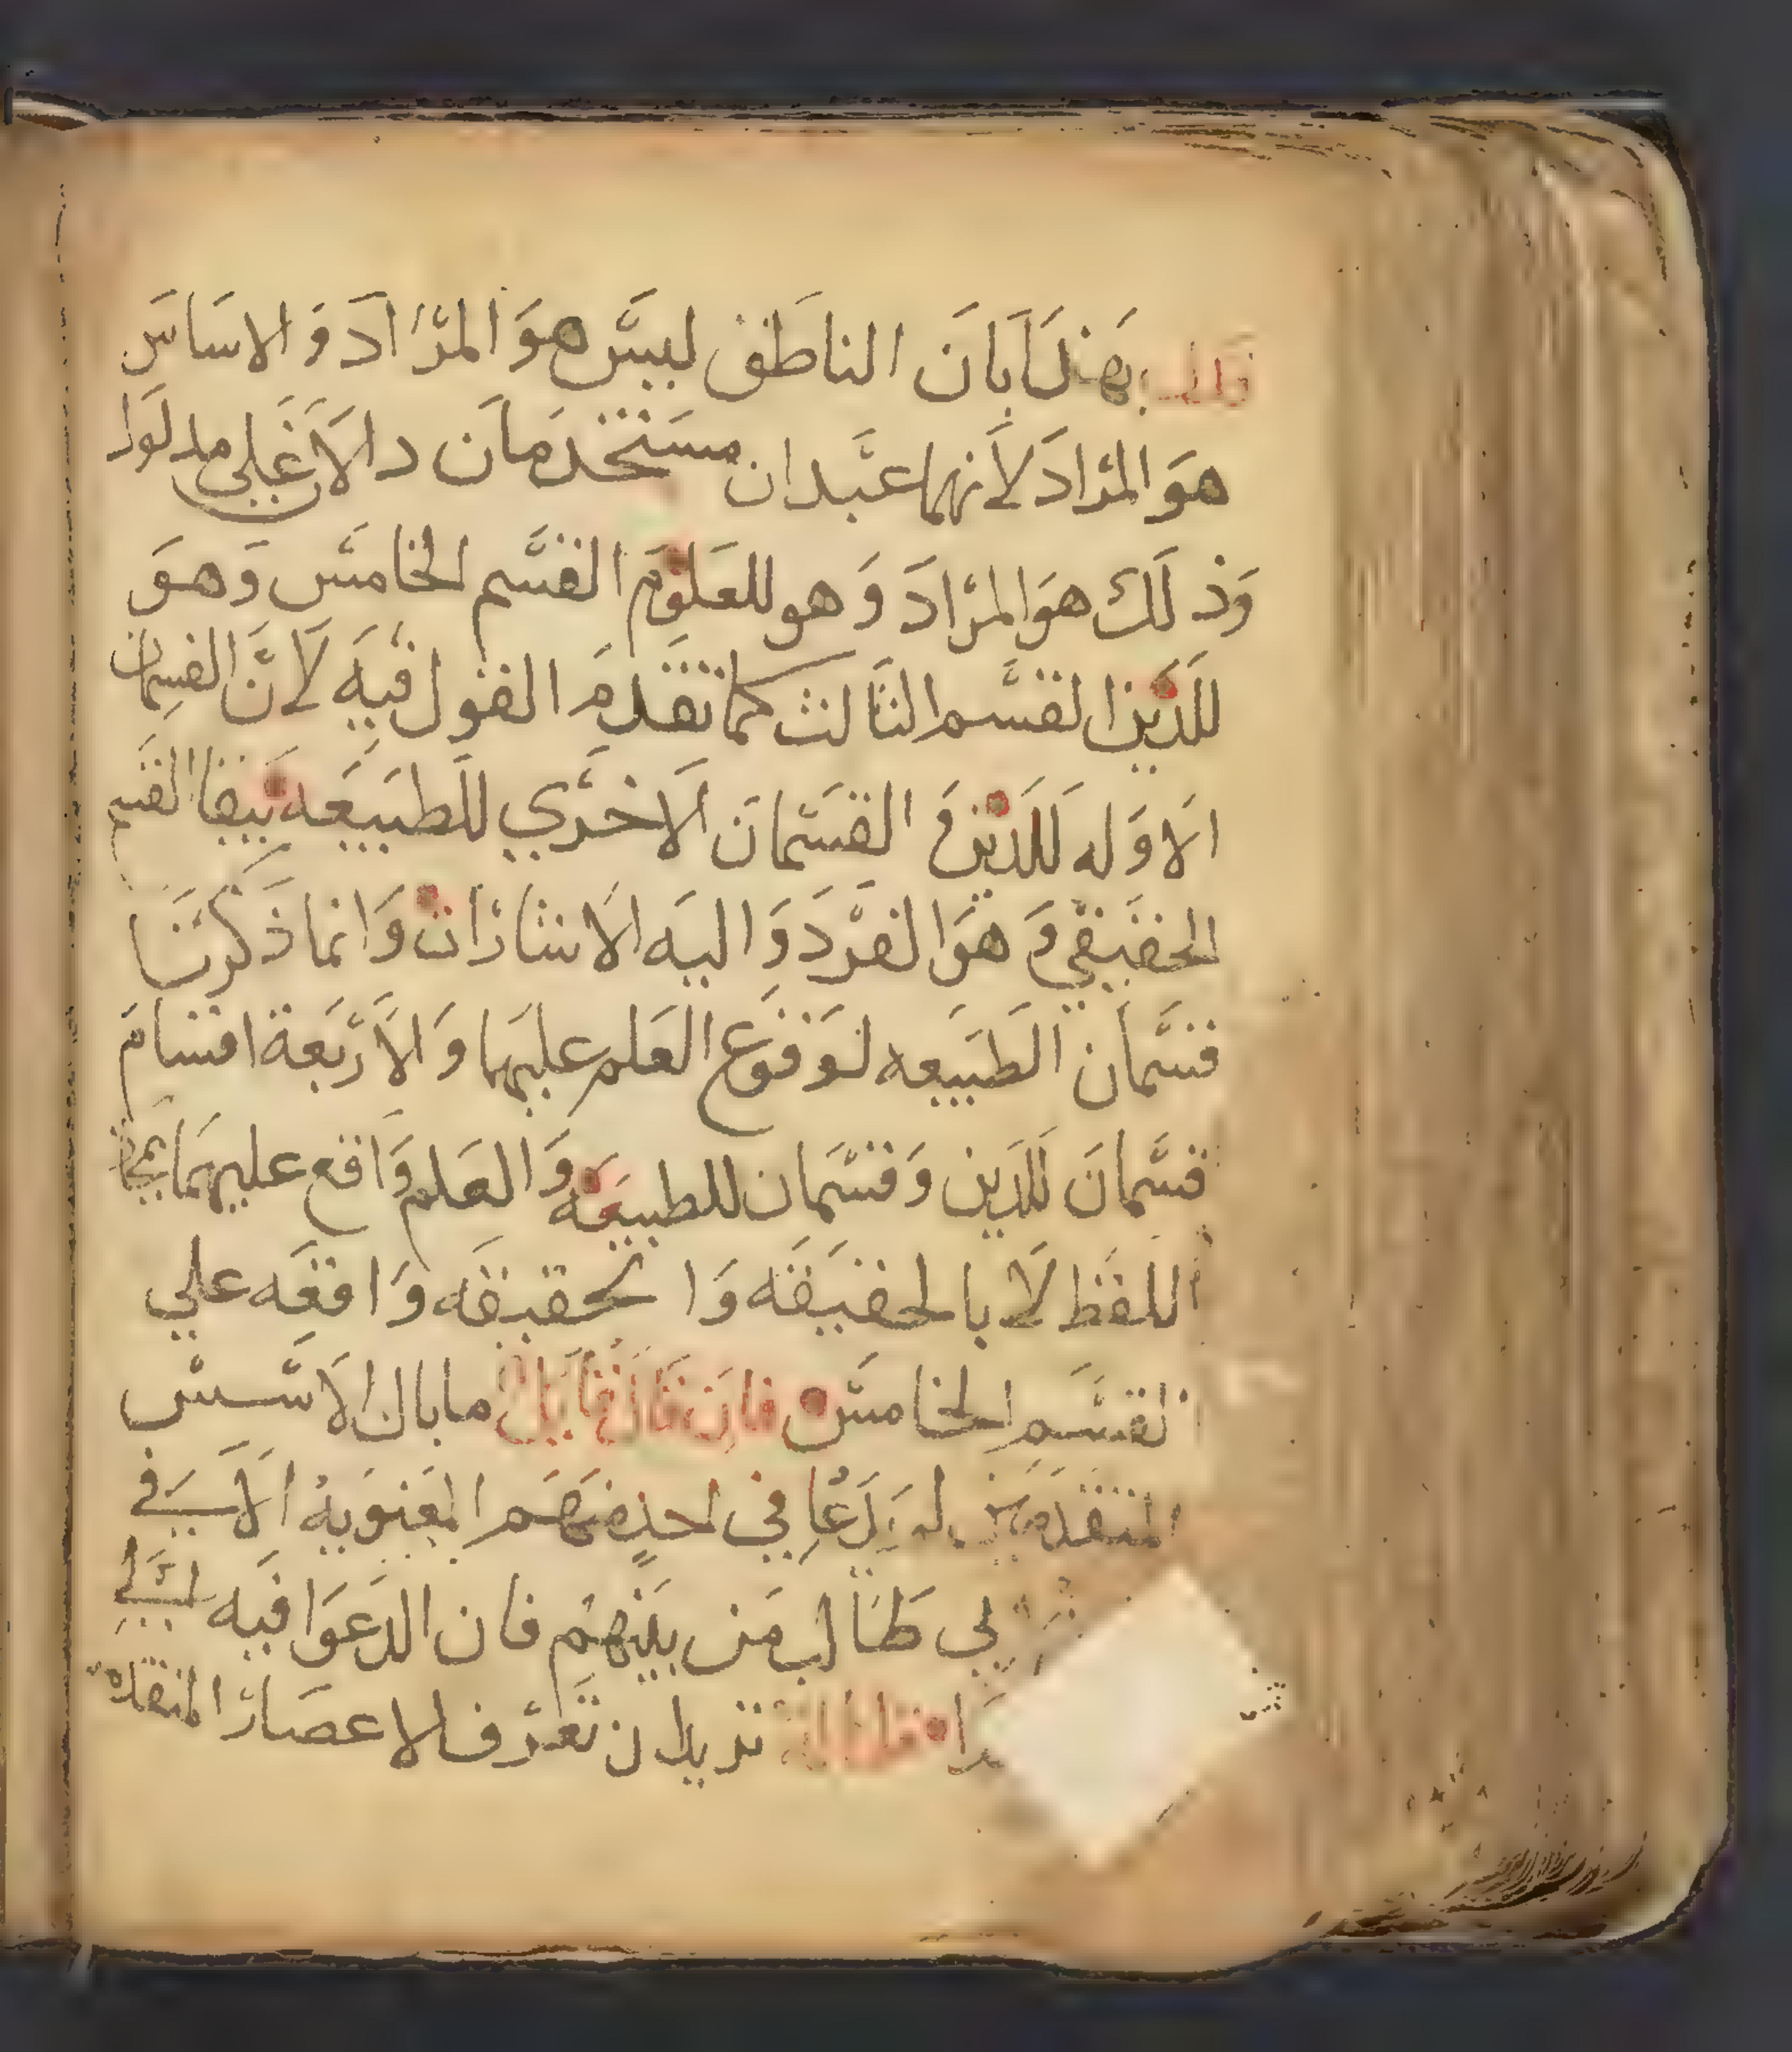 فالـ بهذا بان الناطق ليس هو المراد و الاساس
هو المراد لانهما عبدان مستخدمان دالان علي مدلول
وذلك هو المراد وهو للعلوم القسم الخامس وهو
للدين القسم الثالث كما تقدم القول فيه لان القسمان
الاوله للدين و القسمان الاخري للطبيعه يبقا القسم
الحقيقي وهو الفرد واليه الاشارات وانما ذكرنا
قسمان الطبيعه لوقوع العلم عليهما والاربعة اقسام
قسمان للدين وقسمان للطبيعه والعلم واقع عليهما بمجاز
اللفظ لا بالحقيقه وا تحقيقه واقعه علي
القسم الخامس فان قال قايل ما بال الاسس
المتقدمين لم يدعا في احد منهم المعنويه الا في
بي طالب من بينهم فان الدعوا فيه
قلنا له تريد ان تعرف الاعصار المتقدمه